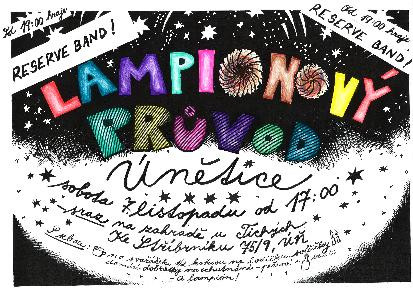 Od 19:00 hraje
RESERVE BAND!
Od 19:00 hraje
RESERVE BAND!
LAMPIONOVÝ
PRŮVOD
Únětice
sobota 7. listopadu od 17:00
sraz na zahradě u Tichých
Ke Stříbrníku 75/9, ÚN
S sebou:
a lampion!